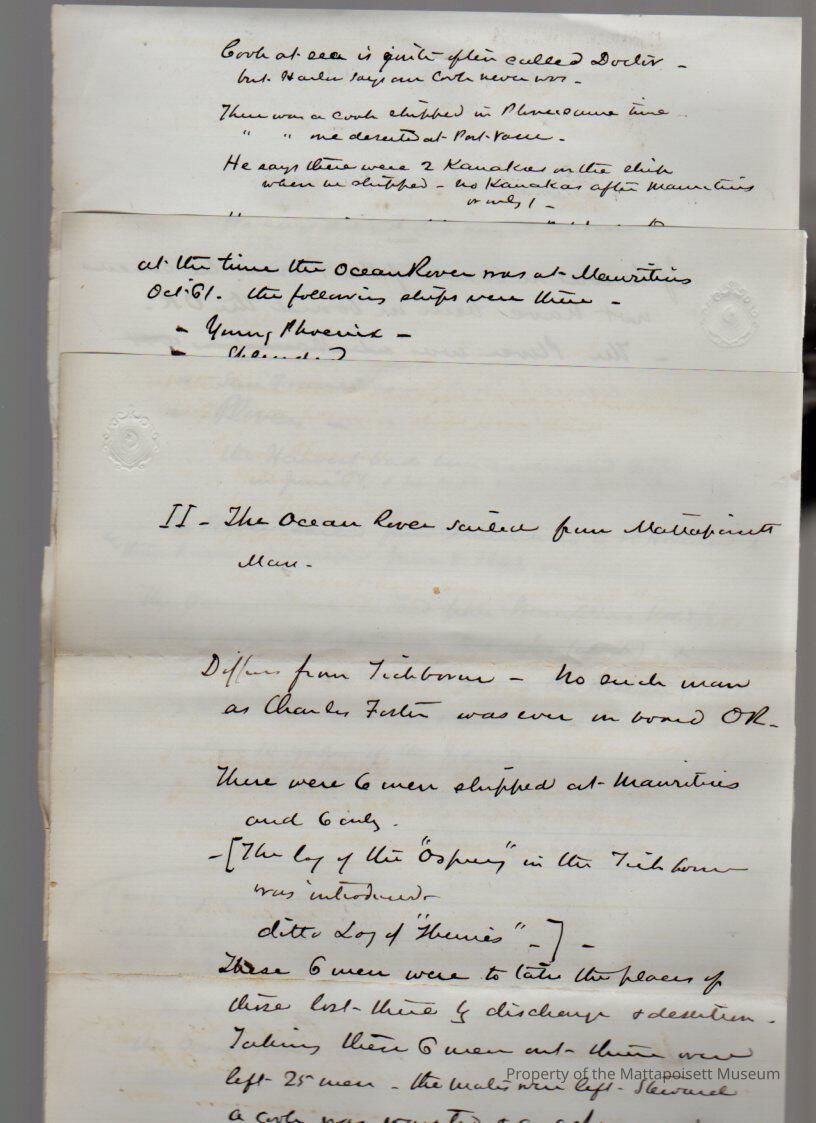 Cook at sea is quite often called Doctor -
but Harlen says our Cook never was -
There was a cook shipped in time
" " one deserted at Port
He says there were 2 Kanakas on the ship
when he shipped - no Kanakas after Mauritius
or only 1 -
at the time the Ocean Rover was at Mauritius
Oct 61. the following ships were there -
- Young Phoenix -
-
II - The Ocean Rover sailed from Mattapoisett
Mass -
Differs from Tichborne - No such man
as Charles Foster was ever on board OR -
There were 6 men shipped at Mauritius
and 6 only.
- [The log of the "Osprey" in the Tichborne
was introduced
ditto Log of " " - ] -
These 6 men were to take the places of
those lost there by discharge & desertion -
Taking these 6 men out there were
left 25 men - the mates were left - Steward
a cook was wanted &
Property of the Mattapoisett Museum